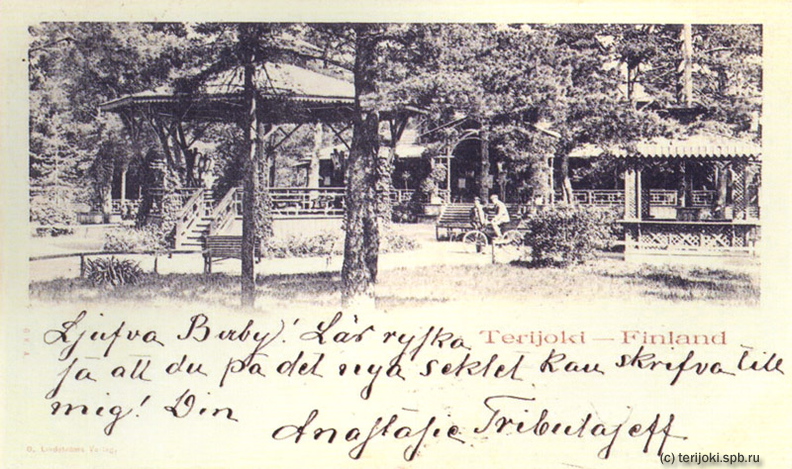 Terijoki — Finland
Ljufva Buby! Lär ryska
så att du på det nya seklet kan skrifva till
mig! Din
Anastasie Tributajeff
(c) terijoki.spb.ru